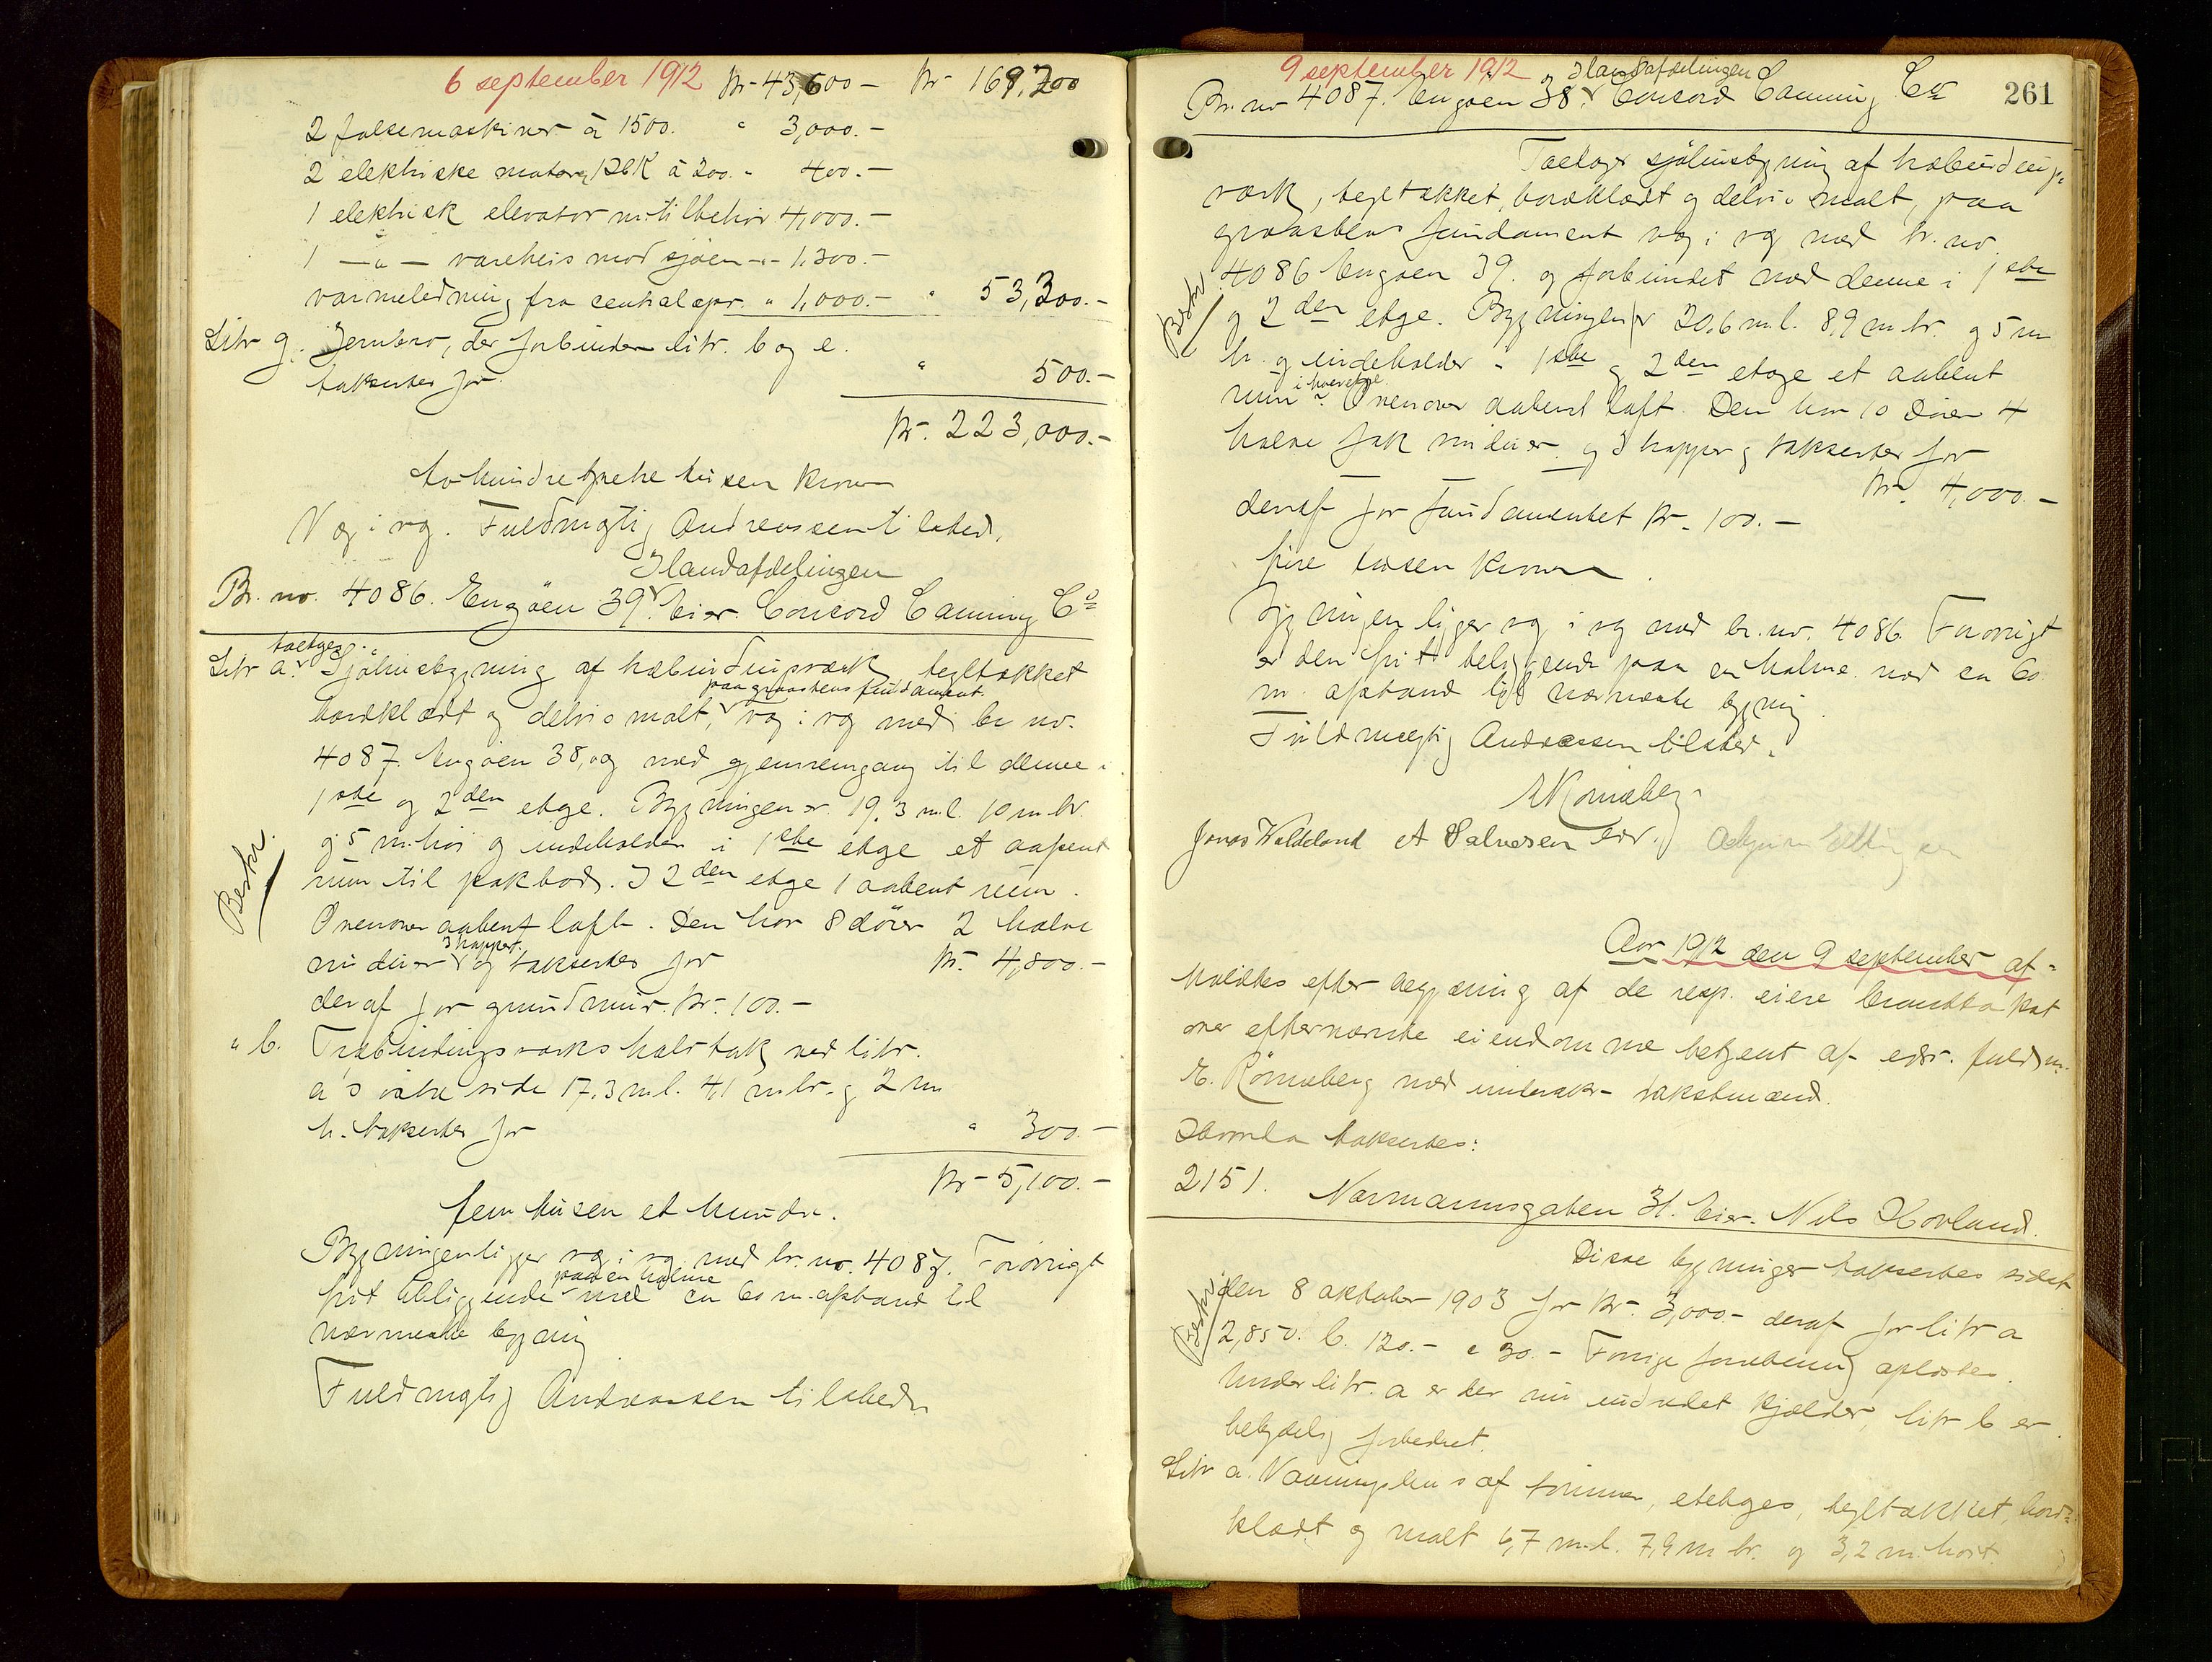 6 september 1912 kr- 43,600 - kr- 169,200
2 falsemaskiner à 1500. " 3,000.-
2 elektriske motorer à 200. " 400.-
1 elektrisk elevator m. tilbehør 4,000.-
1 -"- vareheis mod sjøen -"- 1,300.-
varmeledning fra centralapr. " 1,000.- " 53,300.-
Litr g. Jernbro, der forbinder litr. b og e.
takseres for " 500.-
kr. 223,000.-
tohundreogtretre tusen kroner
Væg i væg. Fuldmægtig Andreassen tilstede.
Ilandafdelingen
Br. no. 4086. Engøen 39. Eier. Concord Canning Co
toetages
Litr a. Sjøhusbygning af halvbindingsværk, tegltækket
paa graastens fundament
bordklædt og delvis malt, væg i væg med br no.
4087. Engøen 38, og med gjennemgang til denne i
1ste og 2den etage. Bygningen er 19,3 m.l. 10 m. br.
og 5 m. høi og indeholder i 1ste etage et aapent
rum til pakbod. I 2den etage 1 aabent rum.
Ovenover aabent loft. Den har 8 dører 2 halve
3 trapper.
Beskr.
vinduer og takseres for kr. 4,800.-
deraf for grundmur. kr. 100.-
" b. Træbindingsværks halvtak ved litr.
a's østre side 17,3 m.l. 4,1 m. br. og 2 m
h. takseres for " 300.-
kr- 5,100.-
fem tusen et hundre.
Bygningen ligger væg i væg med br. no. 4087. Forøvrigt
paa en holme
frit beliggende med ca 60 m. afstand til
nærmeste bygning
Fuldmægtig Andreassen tilstede
9 september 1912 og Ilandafdelingen
261
Br. no 4087. Engøen 38. Concord Canning Co
Toetages sjøhusbygning af halvbindings-
værk, tegltækket, bordklædt og delvis malt, paa
graastens fundament væg i væg med br. no.
4086 Engøen 39. og forbundet med denne i 1ste
Beskr.
og 2den etage. Bygningen er 20,6 m.l. 8,9 m. br. og 5 m
h. og indeholder i 1ste og 2den etage et aabent
i hver etage.
rum. Ovenover aabent loft. Den har 10 dører 4
halve fak vinduer og 3 trapper og takseres for
kr. 4,000.-
deraf for fundamentet kr. 100.-
fire tusen kroner.
Bygningen ligger væg i væg med br. no. 4086. Forøvrigt
er den frit beliggende paa en holme med ca 60
m. afstand til nærmeste bygning.
Fuldmægtig Andreassen tilstede.
E Rømcke berg
Jonas Waldeland A Salvesen edr. Asbjørn Ellingsen
Aar 1912 den 9 september af-
holdtes efter begjæring af de resp. eiere branntakst
over efternævnte eiendomme betjent af edsv. fuldm.
E. Rønneberg med underskr. takstmænd.
Storhla takseres:
2151. Normannsgaten 31. Eier. Nils Hovland.
Disse bygninger takseredes sidst
Beskr.
den 8 oktober 1903 for kr. 3,000.- deraf for litr a
2,850. b. 120.- c 30.- Forrige forretning oplæstes.
Under litr. a er der nu indredet kjælder, litr b er
betydelig forbedret.
Litr a. Vaaningshus af tømmer, etetages, tegltækket, bord-
klædt og malt 6,7 m.l. 7,9 m br. og 3,2 m. høit.